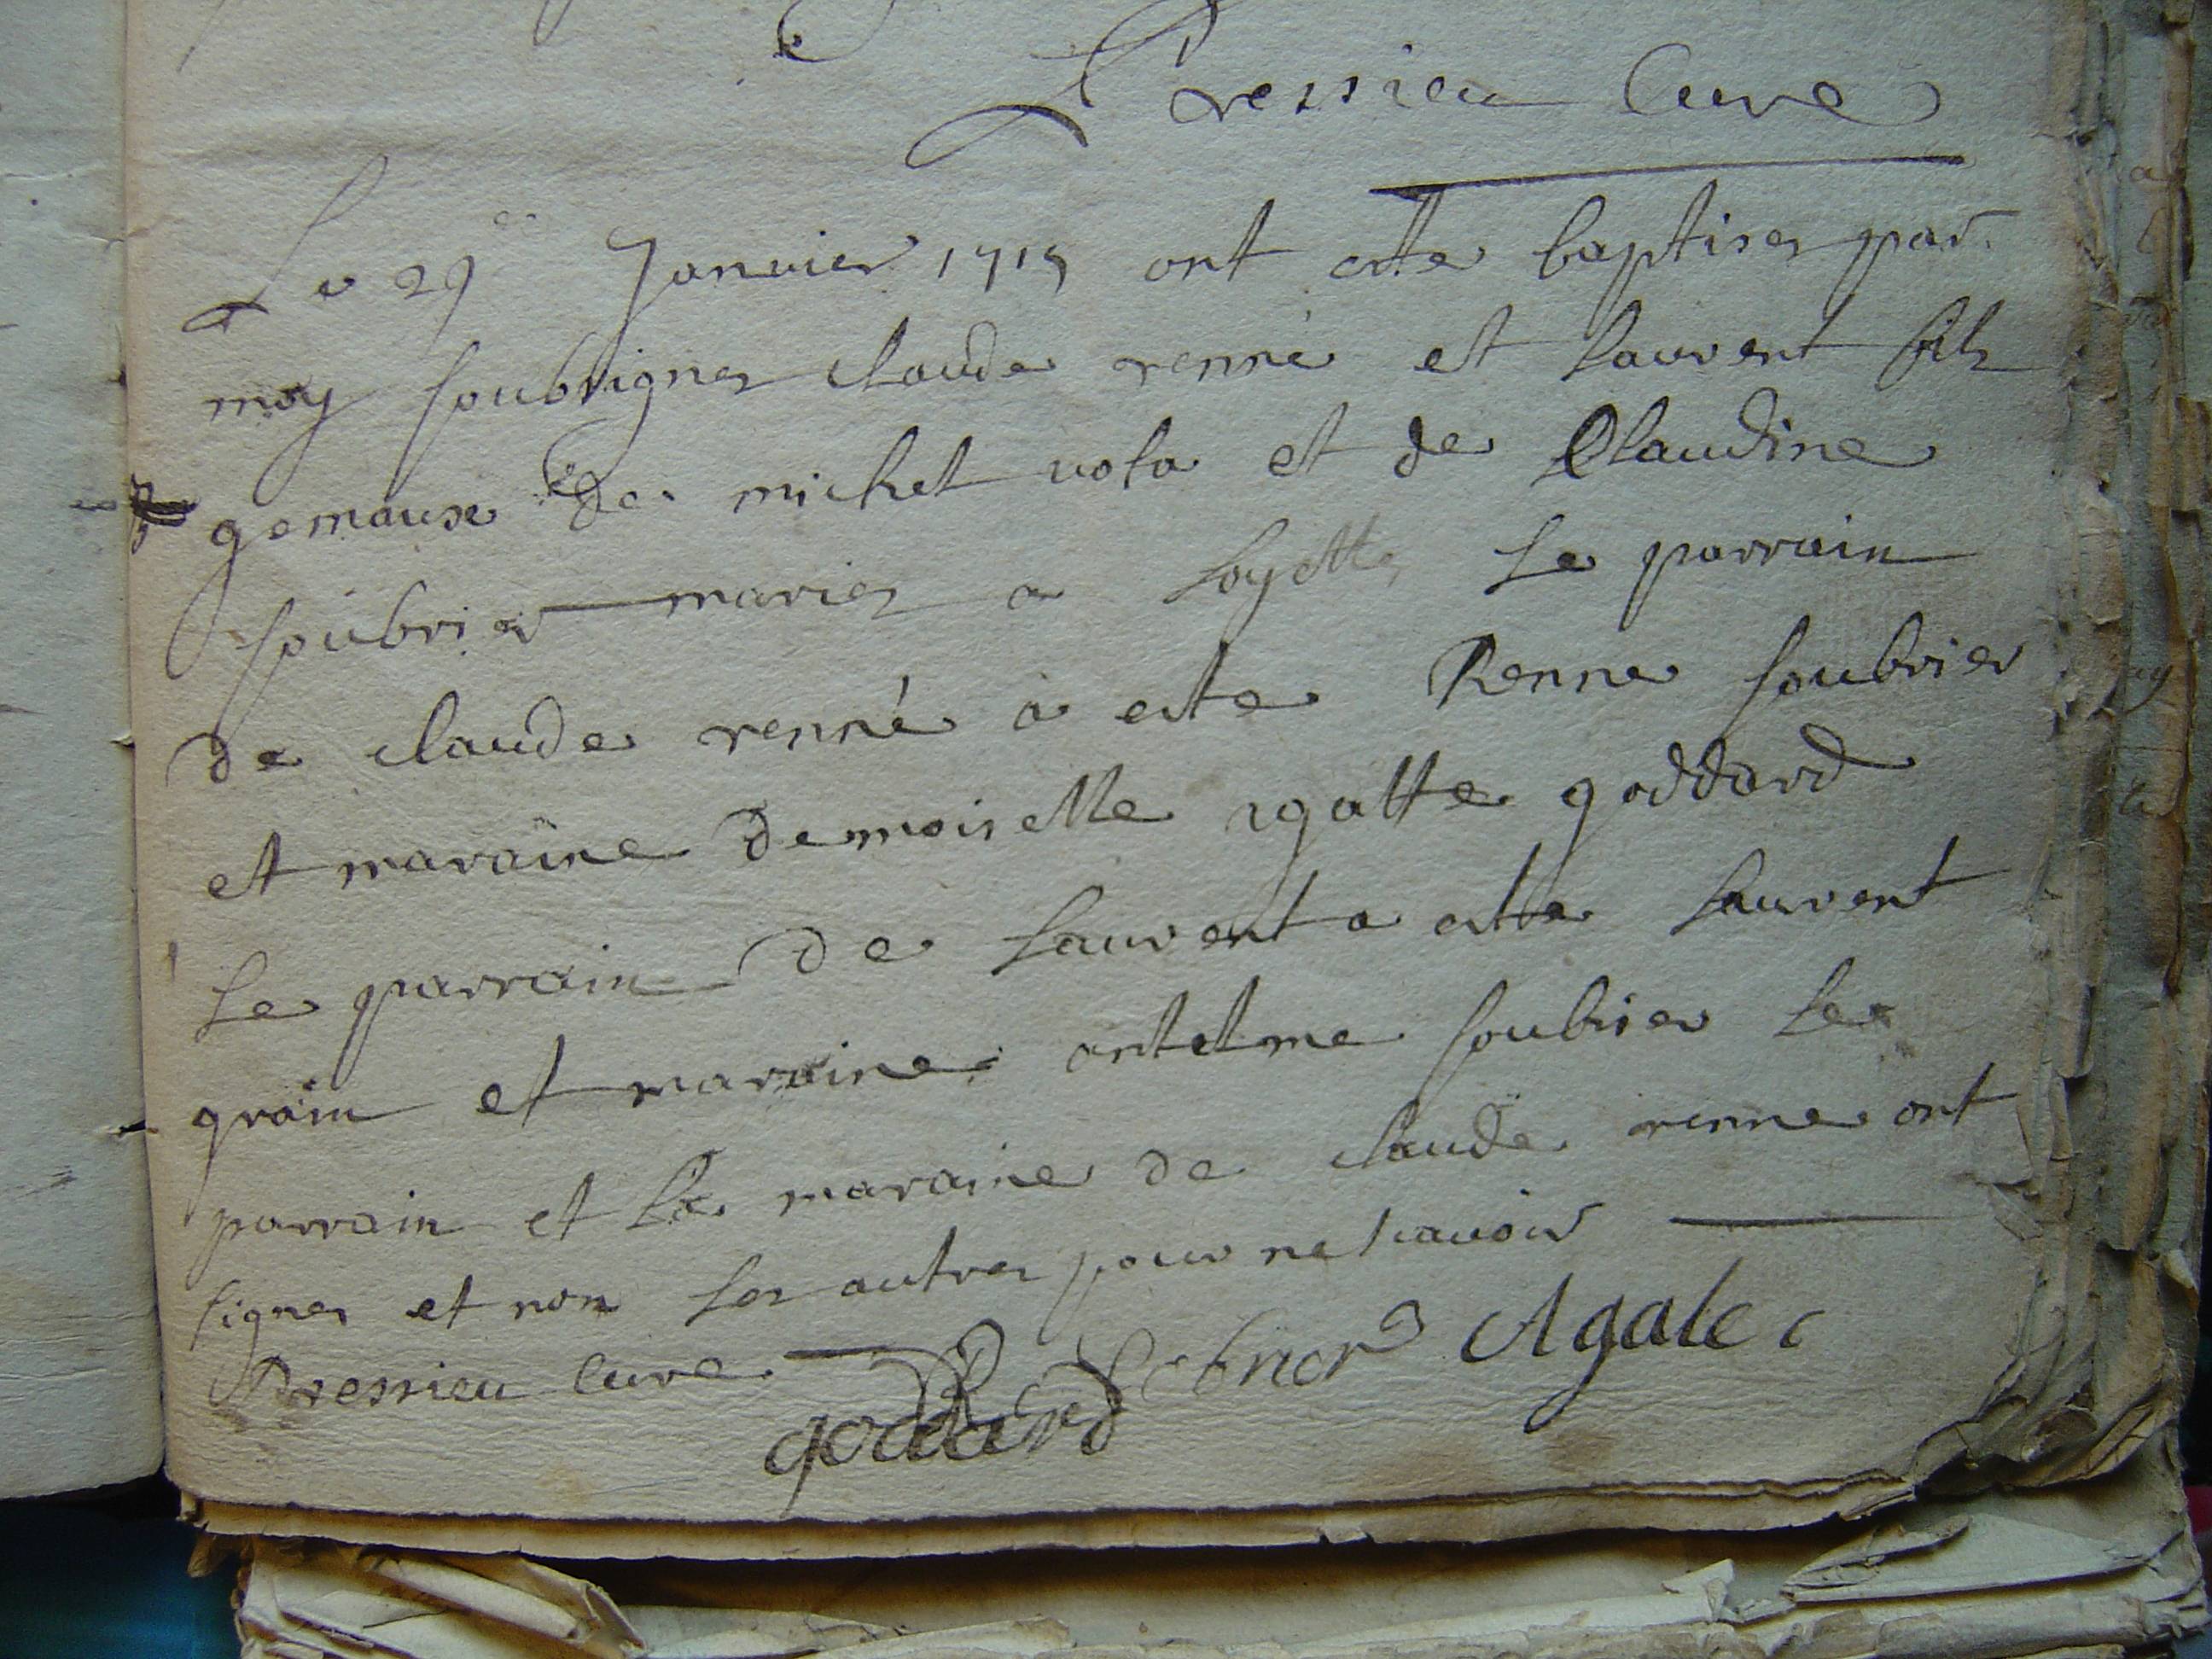 Pressieu Cure
Le 29e Janvier 1715 ont este baptises par
moy soubsignes claude renné et laurent fils
gemaux de michel nola et de Claudine
soubrier maries a loyette le parrain
de claude renné a este Renne soubrier
et maraine demoiselle agatte goddard
Le parrain de laurent a este laurent
grain et maraine antelme soubrier le
parrain et la maraine de claude renne ont
signes et non les autres pour ne scavoir
Pressieu cure
Agate
goddard